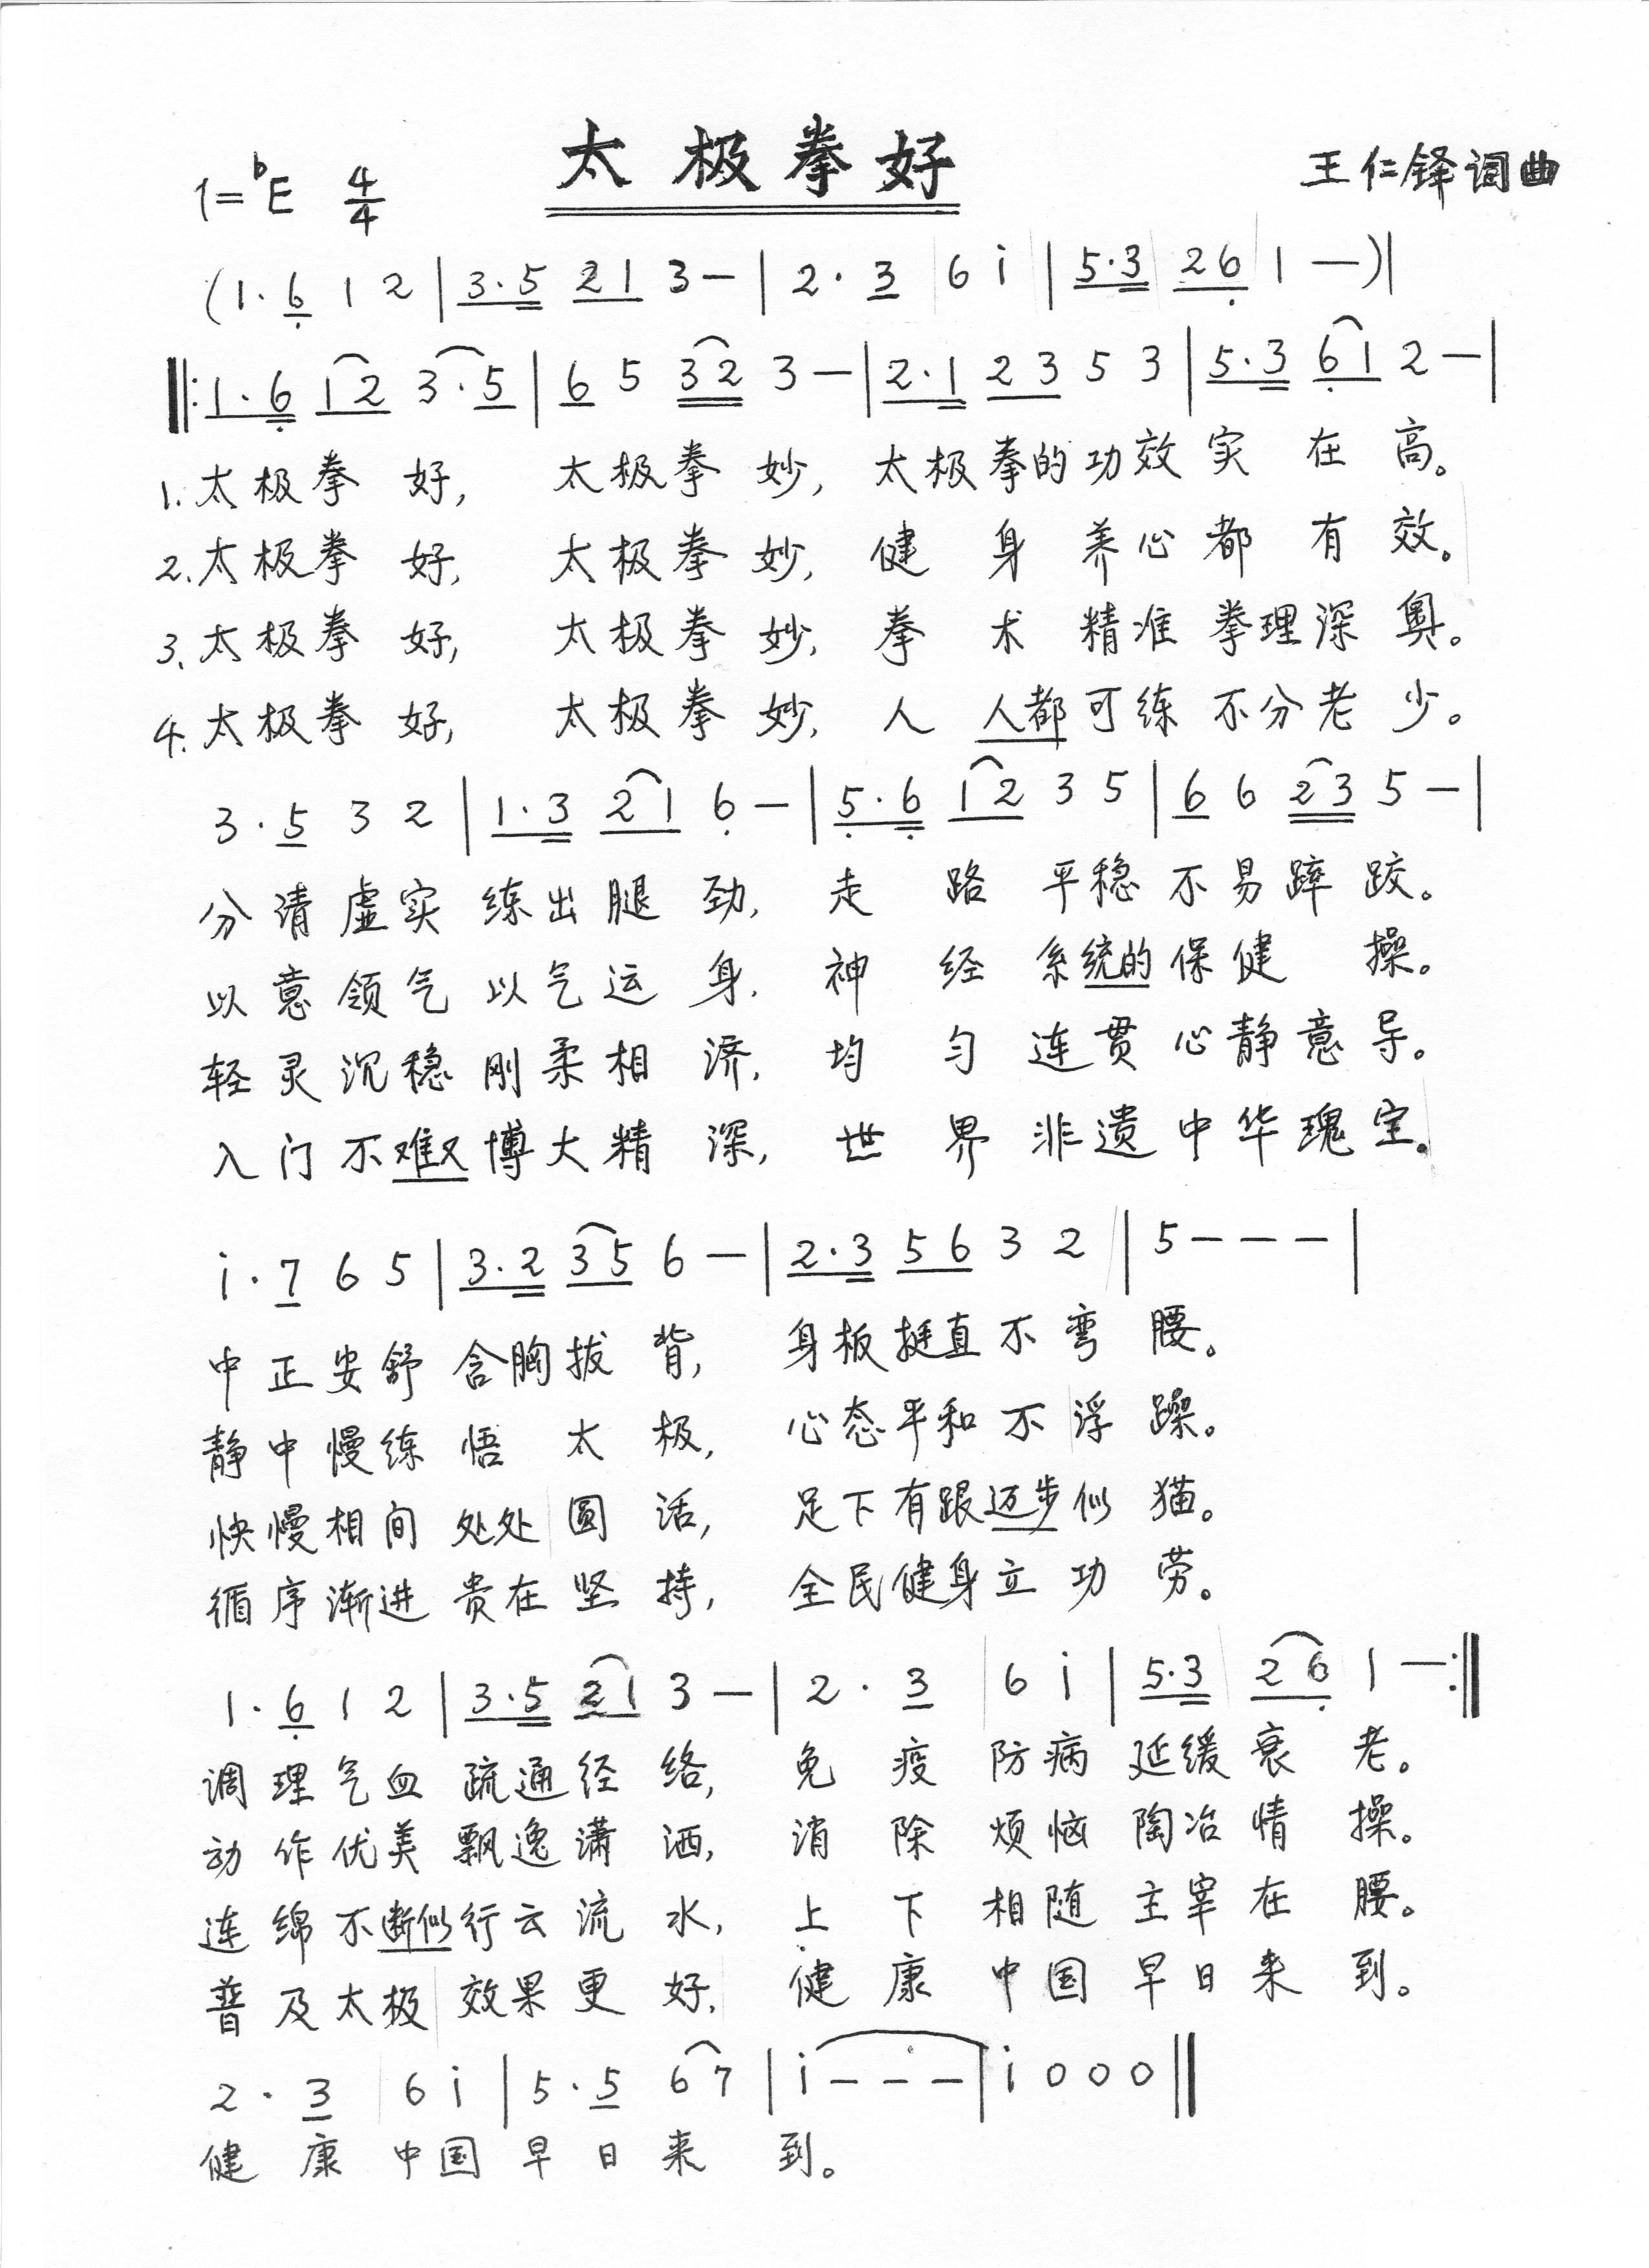 太极拳好
1=♭E 4/4 王仁铎词曲
(1·6̣ 1 2 | 3·5 2 1 3 — | 2·3 6 i | 5·3 2 6̣ 1 — )|
‖: 1·6̣ 1 2 3·5 | 6 5 3 2 3 — | 2·1 2 3 5 3 | 5·3 6̣ 1 2 — |
1.太极拳好, 太极拳妙, 太极拳的功效实在高。
2.太极拳好, 太极拳妙, 健身养心都有效。
3.太极拳好, 太极拳妙, 拳术精准拳理深奥。
4.太极拳好, 太极拳妙, 人人都可练不分老少。
3·5 3 2 | 1·3 2 1 6̣ — | 5̣·6̣ 1 2 3 5 | 6 6 2 3 5 — |
分清虚实练出腿劲, 走路平稳不易蹿跤。
以意领气以气运身, 神经系统的保健操。
轻灵沉稳刚柔相济, 均匀连贯心静意导。
入门不难又博大精深, 世界非遗中华瑰宝。
i·7 6 5 | 3·2 3 5 6 — | 2·3 5 6 3 2 | 5 — — — |
中正安舒含胸拔背, 身板挺直不弯腰。
静中慢练悟太极, 心态平和不浮躁。
快慢相间处处圆活, 足下有跟迈步似猫。
循序渐进贵在坚持, 全民健身立功劳。
1·6̣ 1 2 | 3·5 2 1 3 — | 2·3 6 i | 5·3 2 6̣ 1 — :‖
调理气血疏通经络, 免疫防病延缓衰老。
动作优美飘逸潇洒, 消除烦恼陶冶情操。
连绵不断似行云流水, 上下相随主宰在腰。
普及太极效果更好, 健康中国早日来到。
2·3 6 i | 5·5 6 7 | i — — — | i 0 0 0 ‖
健康中国早日来到。